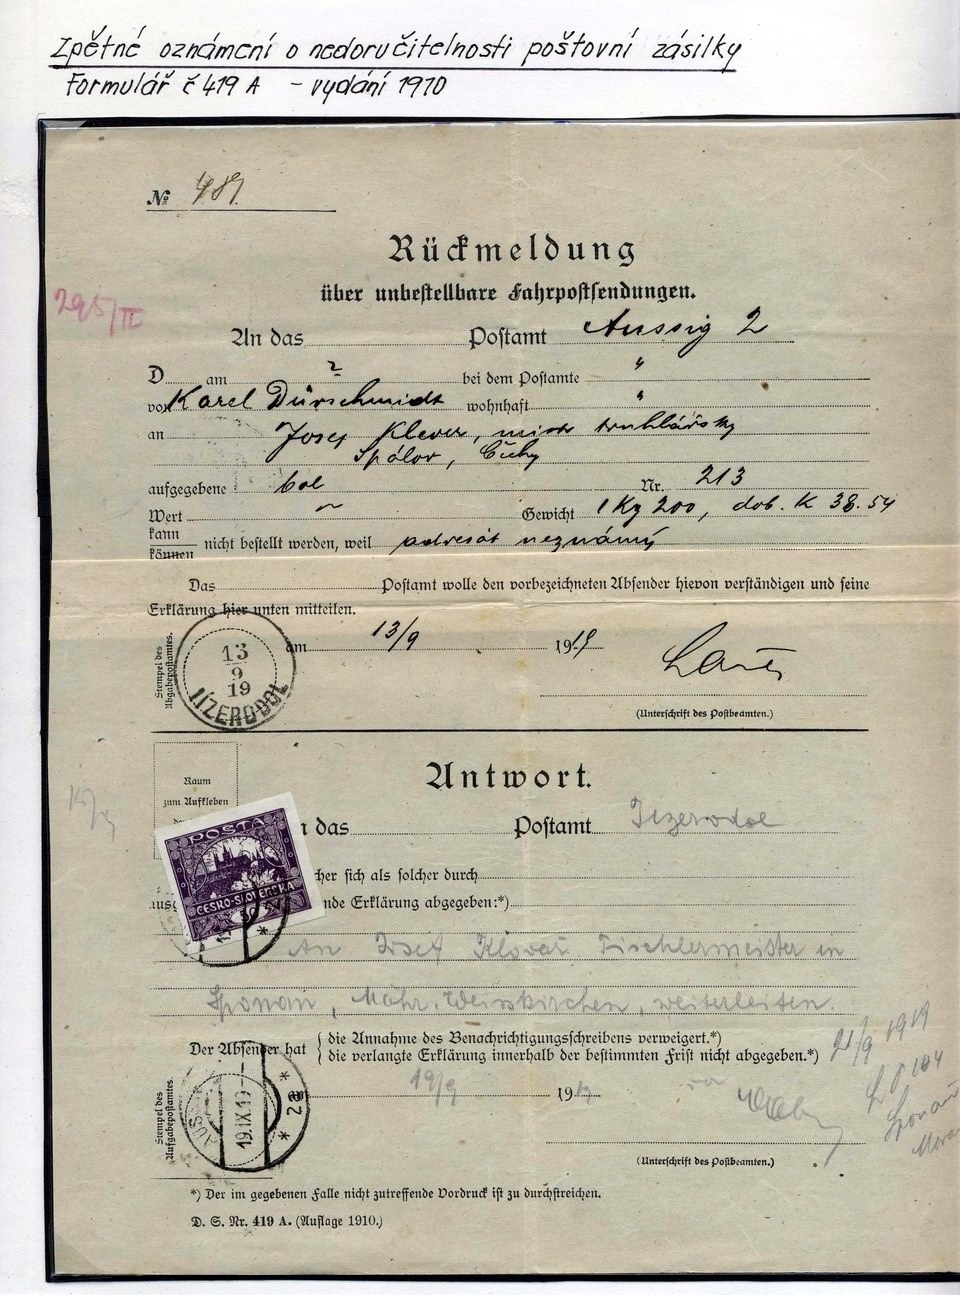 Zpětné oznámení o nedoručitelnosti poštovní zásilky
Formulář č 419 A – vydání 1910
№ 489
Rückmeldung
über unbestellbare Fahrpostsendungen.
295/II
An das Postamt Aussig 2
D am ? bei dem Postamte "
von Karel Dürschmidt wohnhaft "
an Josef Klever, mistr truhlářský
Spálov, Čechy
aufgegebene bal Nr. 213
Wert — Gewicht 1 Kg 200, dob. K 38.54
kann
können nicht bestellt werden, weil adresát neznámý
Das Postamt wolle den vorbezeichneten Absender hievon verständigen und seine
Erklärung hier unten mitteilen.
Stempel des
Abgabepostamtes.
am 13/9 1919
13
9
19
JIZERODOL
(Unterschrift des Postbeamten.)
Antwort.
Raum
zum Aufkleben
POSTA
ČESKO-SLOVENSKÁ
n das Postamt Jizerodol
cher sich als solcher durch
nde Erklärung abgegeben:*)
An Josef Klovař Tischlermeister in
Sponau, Mähr. Weisskirchen, weiterleiten.
Der Absender hat { die Annahme des Benachrichtigungsschreibens verweigert.*)
{ die verlangte Erklärung innerhalb der bestimmten Frist nicht abgegeben.*)
21/9 1919
Stempel des
Aufgabepostamtes.
19/9 1919
19.IX.19
* 2a *
Sponau
(Unterschrift des Postbeamten.)
*) Der im gegebenen Falle nicht zutreffende Vordruck ist zu durchstreichen.
D. S. Nr. 419 A. (Auflage 1910.)